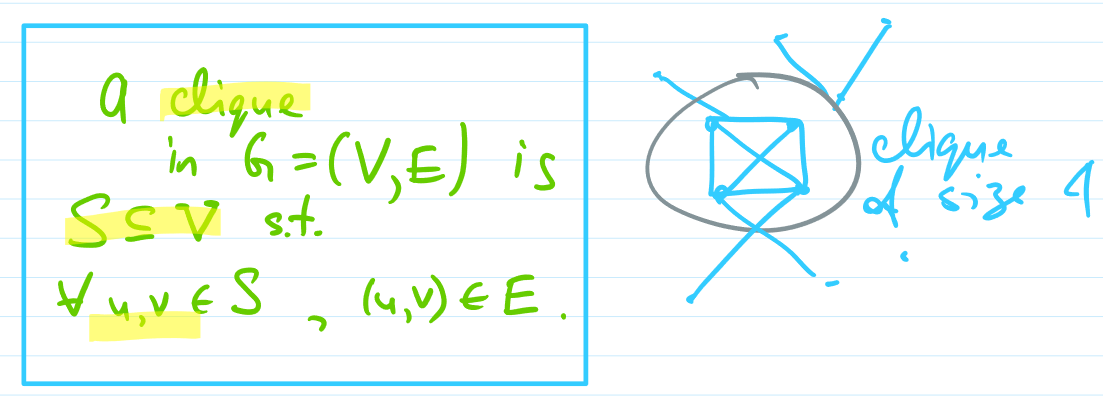 a clique
in G = (V, E) is
S ⊆ V s.t.
∀ u, v ∈ S , (u, v) ∈ E .
clique
of size 4